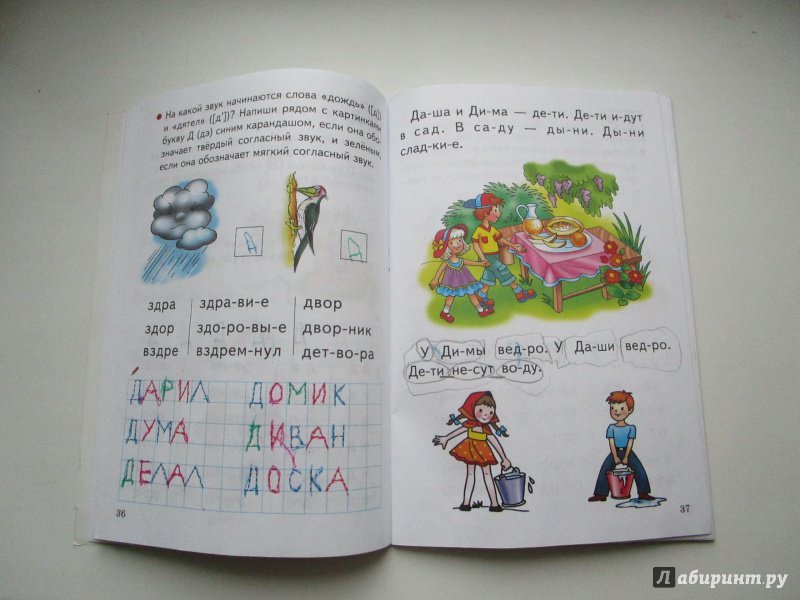 На какой звук начинаются слова «дождь» ([д])
и «дятел» ([д'])? Напиши рядом с картинками
букву Д (дэ) синим карандашом, если она обо-
значает твёрдый согласный звук, и зелёным,
если она обозначает мягкий согласный звук.
Д
Д
здра здра-ви-е двор
здор здо-ро-вы-е двор-ник
вздре вздрем-нул дет-во-ра
ДАРИЛ ДОМИК
ДУМА ДИВАН
ДЕЛАЛ ДОСКА
36
Да-ша и Ди-ма — де-ти. Де-ти и-дут
в сад. В са-ду — ды-ни. Ды-ни
слад-ки-е.
У Ди-мы вед-ро. У Да-ши вед-ро.
Де-ти не-сут во-ду.
37
Лабиринт.ру